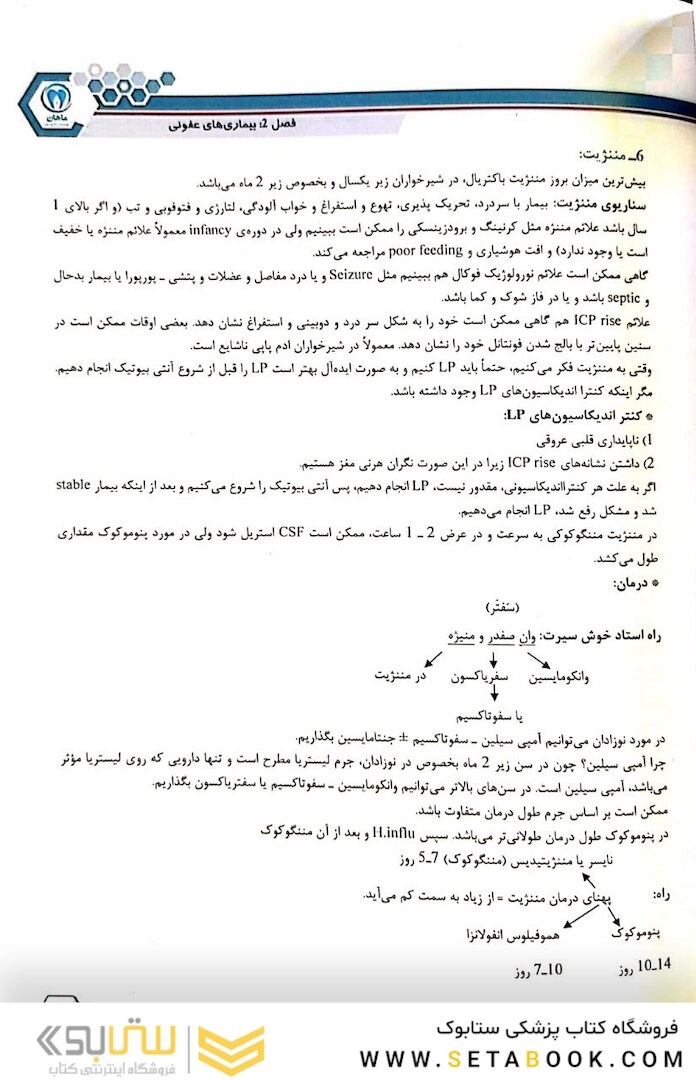 ماهان
فصل 2: بیماری‌های عفونی
6ـ مننژیت:
بیش‌ترین میزان بروز مننژیت باکتریال، در شیرخواران زیر یکسال و بخصوص زیر 2 ماه می‌باشد.
سناریوی مننژیت: بیمار با سردرد، تحریک پذیری، تهوع و استفراغ و خواب آلودگی، لتارژی و فتوفوبی و تب (و اگر بالای 1
سال باشد علائم مننژه مثل کرنینگ و برودزینسکی را ممکن است ببینیم ولی در دوره‌ی infancy معمولاً علائم مننژه یا خفیف
است یا وجود ندارد) و افت هوشیاری و poor feeding مراجعه می‌کند.
گاهی ممکن است علائم نورولوژیک فوکال هم ببینیم مثل Seizure و یا درد مفاصل و عضلات و پتشی ـ پورپورا یا بیمار بدحال
و septic باشد و یا در فاز شوک و کما باشد.
علائم ICP rise هم گاهی ممکن است خود را به شکل سر درد و دوبینی و استفراغ نشان دهد. بعضی اوقات ممکن است در
سنین پایین‌تر با بالج شدن فونتانل خود را نشان دهد. معمولاً در شیرخواران ادم پاپی ناشایع است.
وقتی به مننژیت فکر می‌کنیم، حتماً باید LP کنیم و به صورت ایده‌آل بهتر است LP را قبل از شروع آنتی بیوتیک انجام دهیم.
مگر اینکه کنترا اندیکاسیون‌های LP وجود داشته باشد.
* کنتر اندیکاسیون‌های LP:
1) ناپایداری قلبی عروقی
2) داشتن نشانه‌های ICP rise زیرا در این صورت نگران هرنی مغز هستیم.
اگر به علت هر کنترااندیکاسیونی، مقدور نیست، LP انجام دهیم، پس آنتی بیوتیک را شروع می‌کنیم و بعد از اینکه بیمار stable
شد و مشکل رفع شد، LP انجام می‌دهیم.
در مننژیت مننگوکوکی به سرعت و در عرض 2 ـ 1 ساعت، ممکن است CSF استریل شود ولی در مورد پنوموکوک مقداری
طول می‌کشد.
* درمان:
(سَفتَر)
راه استاد خوش سیرت: وان صفدر و منیژه
وانکومایسین سفریاکسون در مننژیت
یا سفوتاکسیم
در مورد نوزادان می‌توانیم آمپی سیلین ـ سفوتاکسیم ± جنتامایسین بگذاریم.
چرا آمپی سیلین؟ چون در سن زیر 2 ماه بخصوص در نوزادان، جرم لیستریا مطرح است و تنها دارویی که روی لیستریا مؤثر
می‌باشد، آمپی سیلین است. در سن‌های بالاتر می‌توانیم وانکومایسین ـ سفوتاکسیم یا سفتریاکسون بگذاریم.
ممکن است بر اساس جرم طول درمان متفاوت باشد.
در پنوموکوک طول درمان طولانی‌تر می‌باشد. سپس H.influ و بعد از آن مننگوکوک
نایسر یا مننژیتیدیس (مننگوکوک) 7ـ5 روز
راه: پهنای درمان مننژیت = از زیاد به سمت کم می‌آید.
پنوموکوک هموفیلوس انفولانزا
14ـ10 روز 10ـ7 روز
فروشگاه کتاب پزشکی ستابوک
ستابوک
فروشگاه اینترنتی کتاب
WWW.SETABOOK.COM